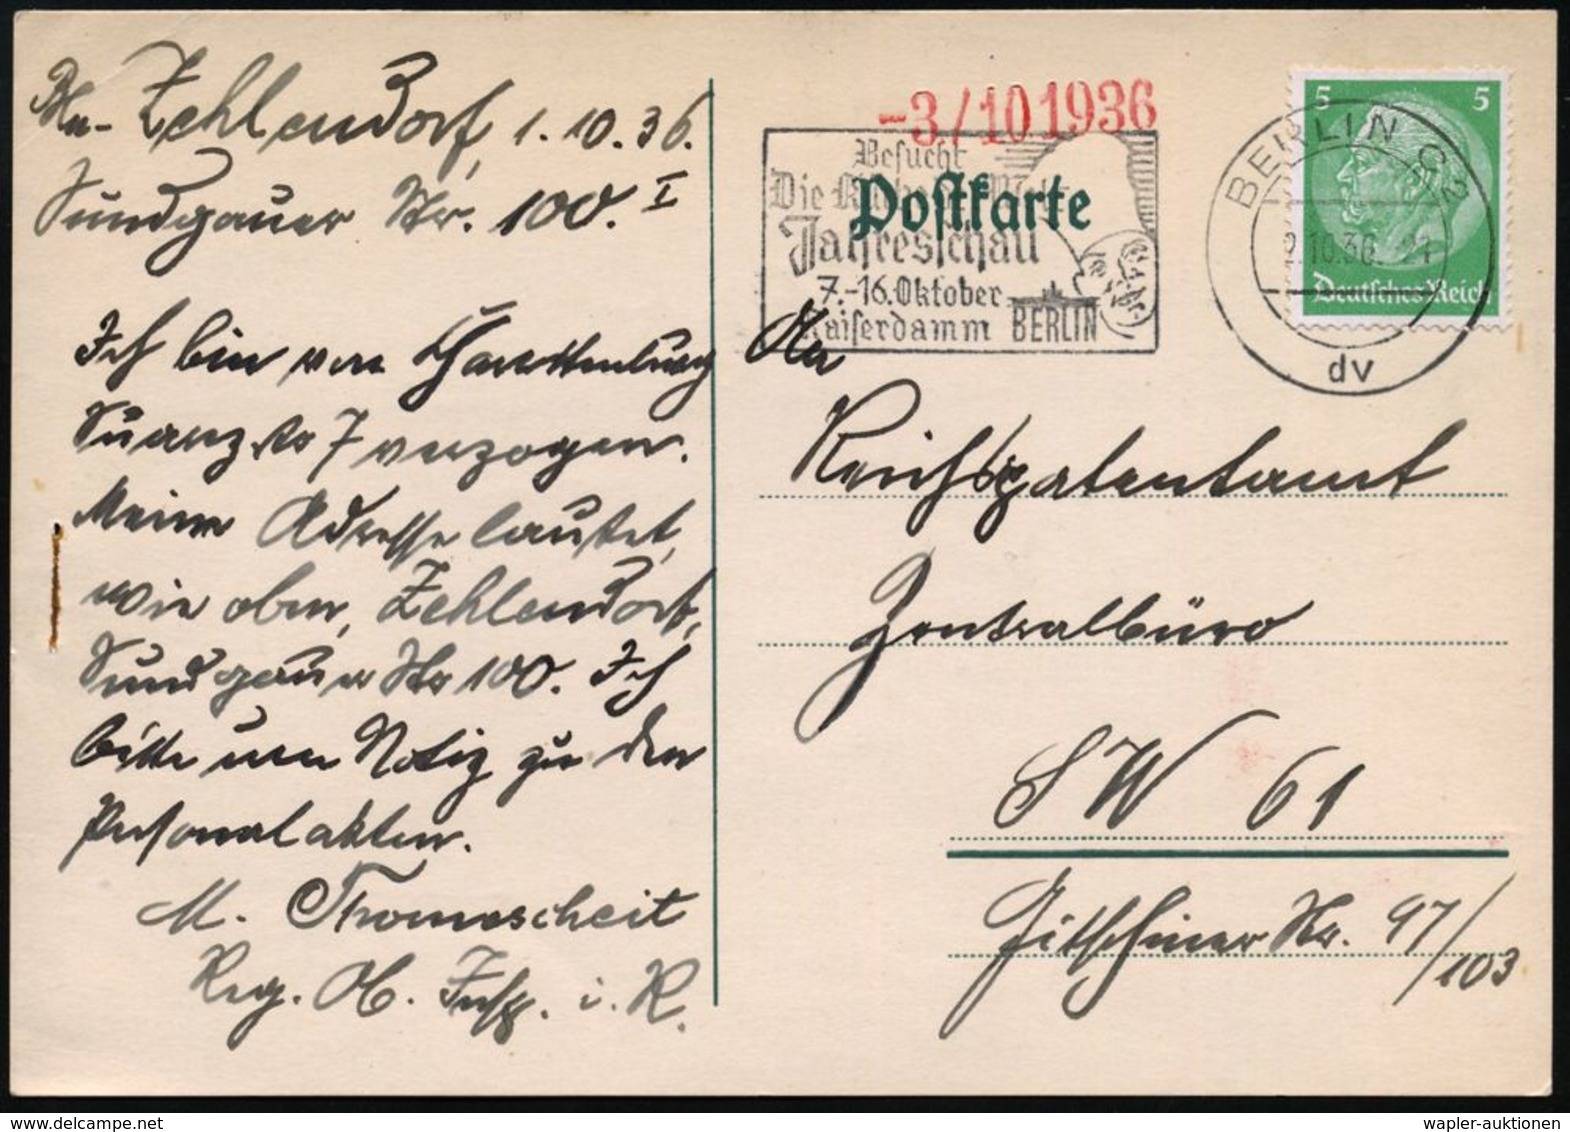 Bln-Zehlendorf, 1.10.36.
Sundgauer Str. 100. I
Ich bin von Charlottenburg
Suarezstr 7 verzogen.
Meine Adresse lautet,
wie oben, Zehlendorf,
Sundgauer Str 100. Ich
bitte um Notiz zu den
Personalakten.
M. Thomascheit
Reg. Ob. Insp. i. R.
-3/10 1936
Besucht
Die
Jahresschau
7.-16. Oktober
Kaiserdamm BERLIN
Postkarte
BERLIN C2
2.10.36. 21
dv
5 5
Deutsches Reich
An
Reichspatentamt
Zentralbüro
SW 61
Gitschiner Str. 97/103
wapler-auktionen